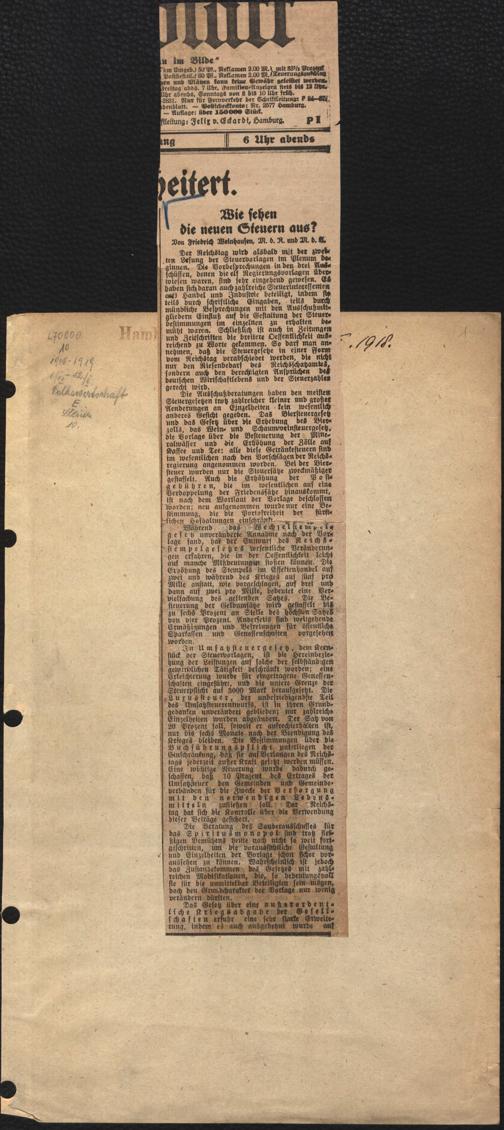 blatt
im Bilde"
Auflage: über 150000 Stück.
Felix v. Eckardt, Hamburg.
P I
6 Uhr abends
heitert.
Wie sehen
die neuen Steuern aus?
Von Friedrich Weinhausen, M. d. R. und M. d. A.
Der Reichstag wird alsbald mit der zwei-
ten Lesung der Steuervorlagen im Plenum be-
ginnen. Die Vorbesprechungen in den drei Aus-
schüssen, denen die elf Regierungsvorlagen über-
wiesen waren, sind sehr eingehend gewesen. Es
haben sich daran auch zahlreiche Steuerinteressenten
aus Handel und Industrie beteiligt, indem sie
teils durch schriftliche Eingaben, teils durch
mündliche Besprechungen mit den Ausschußmit-
gliedern Einfluß auf die Gestaltung der Steuer-
bestimmungen im einzelnen zu erhalten be-
müht waren. Schließlich ist auch in Zeitungen
und Zeitschriften die breitere Oeffentlichkeit aus-
reichend zu Worte gekommen. So darf man an-
nehmen, daß die Steuergesetze in einer Form
vom Reichstag verabschiedet werden, die nicht
nur den Riesenbedarf des Reichsschatzamtes,
sondern auch den berechtigten Ansprüchen des
deutschen Wirtschaftslebens und der Steuerzahler
gerecht wird.
Die Ausschußberatungen haben den meisten
Steuergesetzen trotz zahlreicher kleiner und großer
Aenderungen an Einzelheiten kein wesentlich
anderes Gesicht gegeben. Das Biersteuergesetz
und das Gesetz über die Erhebung des Bier-
zolls, das Wein- und Schaumweinsteuergesetz,
die Vorlage über die Besteuerung der Mine-
ralwässer und die Erhöhung der Zölle auf
Kaffee und Tee: alle diese Getränkesteuern sind
im wesentlichen nach den Vorschlägen der Reichs-
regierung angenommen worden. Bei der Bier-
steuer wurden nur die Steuersätze zweckmäßiger
gestaffelt. Auch die Erhöhung der Post-
gebühren, die im wesentlichen auf eine
Verdoppelung der Friedenssätze hinauskommt,
ist nach dem Wortlaut der Vorlage beschlossen
worden; neu aufgenommen wurde nur eine Be-
stimmung, die die Portofreiheit der fürst-
lichen Hofhaltungen einschränkt.
Während das Wechselstempel-
gesetz unveränderte Annahme nach der Vor-
lage fand, hat der Entwurf des Reichs-
stempelgesetzes wesentliche Veränderun-
gen erfahren, die in der Oeffentlichkeit leicht
auf manche Mißdeutungen stoßen können. Die
Erhöhung des Stempels im Effektenhandel auf
zwei und während des Krieges auf fünf pro
Mille anstatt, wie vorgeschlagen, auf drei und
dann auf zwei pro Mille, bedeutet eine Ver-
vielfachung des geltenden Satzes. Die Be-
steuerung der Geldumsätze wird gestaffelt bis
zu sechs Prozent an Stelle des höchsten Satzes
von vier Prozent. Anderseits sind weitgehende
Ermäßigungen und Befreiungen für öffentliche
Sparkassen und Genossenschaften vorgesehen
worden.
Im Umsatzsteuergesetz, dem Kern-
stück der Steuervorlagen, ist die Hereinbezie-
hung der Leistungen auf solche der selbständigen
gewerblichen Tätigkeit beschränkt worden; eine
Erleichterung wurde für eingetragene Genossen-
schaften eingeführt, und die untere Grenze der
Steuerpflicht auf 3000 Mark heraufgesetzt. Die
Luxussteuer, der unbefriedigendste Teil
des Umsatzsteuerentwurfs, ist in ihren Grund-
gedanken unverändert geblieben; nur zahlreiche
Einzelheiten wurden abgeändert. Der Satz von
20 Prozent soll, soweit er aufrechterhalten ist,
nur bis sechs Monate nach der Beendigung des
Krieges bleiben. Die Bestimmungen über die
Buchführungspflicht unterliegen der
Einschränkung, daß sie auf Verlangen des Reichs-
tags jederzeit außer Kraft gesetzt werden müssen.
Eine wichtige Neuerung wurde dadurch ge-
schaffen, daß 10 Prozent des Ertrages der
Umsatzsteuer den Gemeinden und Gemeinde-
verbänden für die Zwecke der Versorgung
mit den notwendigen Lebens-
mitteln zufließen soll. Der Reichs-
tag hat sich die Kontrolle über die Verwendung
dieser Beträge gesichert.
Die Beratung des Sonderausschusses für
das Spiritusmonopol sind trotz flei-
ßigen Bemühens heute noch nicht so weit fort-
geschritten, um die voraussichtliche Gestaltung
und Einzelheiten der Vorlage schon sicher vor-
aussehen zu können. Wahrscheinlich ist jedoch
das Zustandekommen des Gesetzes mit zahl-
reichen Modifikationen, die, so bedeutungsvoll
sie für die unmittelbar Beteiligten sein mögen,
doch den Grundcharakter der Vorlage nur wenig
verändern dürften.
Das Gesetz über eine außerordent-
liche Kriegsabgabe der Gesell-
schaften erfuhr eine sehr starke Erweite-
rung, indem es auch ausgedehnt wurde auf
Ham
1918.
1918-1919
Volkswirtschaft